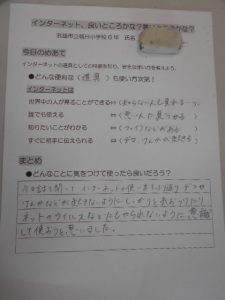 インターネット、良いところかな？悪いところかな？
名護市立朝日小学校６年 氏名
今日のめあて
インターネットの道具としての特徴を知り、安全な使い方を考えよう。
●どんな便利な（道具）も使い方次第！
インターネットは
世界中の人が見ることができる⇔（知らない人も見れる
誰でも使える ⇔（悪い人に見つかる）
知りたいことがわかる ⇔（ウイなどがある
すぐに相手に伝えられる ⇔（デマ、けんかが起きる）
まとめ
●どんなことに気をつけて使ったら良いだろう？
今日話を聞いて インターネットの使い
けんかなどが起きないようにしっかりと
ネットのウイルスなどにもやられないように意識
して使おうと思いました。